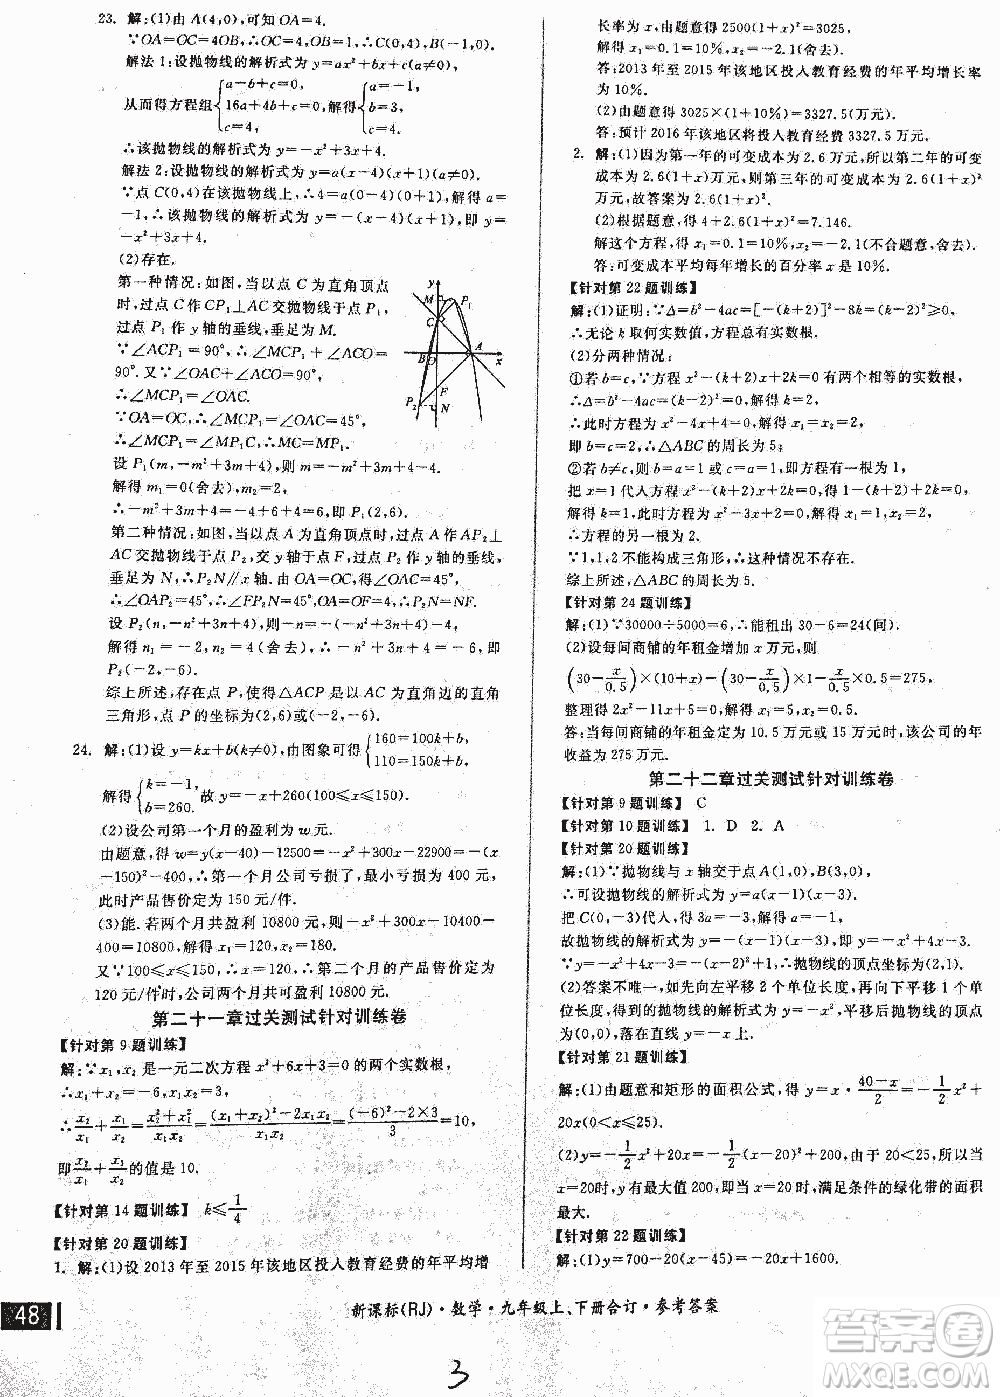 23. 解:(1)由 A(4,0),可知 OA=4.
∵OA=OC=4OB,∴OB=1,OC=4,∴C(0,4),B(-1,0).
解法 1:设抛物线的解析式为 y=ax²+bx+c(a≠0),
从而得方程组{a-b+c=0, 16a+4b+c=0, c=4, 解得{a=-1, b=3, c=4.
∴该抛物线的解析式为 y=-x²+3x+4.
解法 2:设抛物线的解析式为 y=a(x-4)(x+1).
∵点 C(0,4)在抛物线上,∴4=a(0-4)(0+1),解得 a=
-1,∴该抛物线的解析式为 y=-(x-4)(x+1),即 y=
-x²+3x+4.
(2)存在.
第一种情况:如图,当以点 C 为直角顶点
时,过点 C 作 CP₁⊥AC交抛物线于点 P₁,
过点 P₁ 作 y 轴的垂线,垂足为 M.
∵∠ACP₁=90°,∴∠MCP₁+∠ACO=
90°.又∵∠OAC+∠ACO=90°,
∴∠MCP₁=∠OAC.
∵OA=OC,∴∠MCP₁=∠OAC=45°,
∴∠MCP₁=∠MP₁C,∴MC=MP₁.
设 P₁(m,-m²+3m+4),则 m=-m²+3m+4-4,
解得 m₁=0(舍去),m₂=2.
∴-m²+3m+4=-4+6+4=6,即P₁(2,6).
第二种情况:如图,当以点 A 为直角顶点时,过点 A 作 AP₂⊥
AC交抛物线于点 P₂,交 y轴于点 F,过点 P₂ 作 y 轴的垂线,
垂足为 N,∴P₂N∥x 轴.由OA=OC,得∠OAC=45°,
∴∠OAP₂=45°,∴∠FP₂N=45°,OA=OF=4,∴P₂N=NF.
设 P₂(n,-n²+3n+4),则-n=-(-n²+3n+4)-4,
解得 n₁=-2,n₂=4(舍去),∴-n²+3n+4=-6,即
P₂(-2,-6).
综上所述,存在点 P,使得△ACP是以 AC为直角边的直角
三角形,点 P 的坐标为(2,6)或(-2,-6).
24. 解:(1)设 y=kx+b(k≠0),由图象可得{160=100k+b, 110=150k+b,
解得{k=-1, b=260.故 y=-x+260(100≤x≤150).
(2)设公司第一个月的盈利为 w 元.
由题意,得 w=y(x-40)-12500=-x²+300x-22900=-(x
-150)²-400,∴第一个月公司亏损了,最小亏损为 400 元,
此时产品售价定为 150 元/件.
(3)能.若两个月共盈利 10800 元,则-x²+300x-10400-
400=10800,解得 x₁=120,x₂=180.
又∵100≤x≤150,∴x=120,∴第二个月的产品售价定为
120 元/件时,公司两个月共可盈利 10800 元.
第二十一章过关测试针对训练卷
【针对第 9 题训练】
解:∵x₁,x₂ 是一元二次方程 x²+6x+3=0 的两个实数根,
∴x₁+x₂=-6,x₁x₂=3,
∴x₂/x₁+x₁/x₂=(x₂²+x₁²)/(x₁x₂)=((x₁+x₂)²-2x₁x₂)/(x₁x₂)=((-6)²-2×3)/3=10,
即x₂/x₁+x₁/x₂的值是 10.
【针对第 14 题训练】 k≤1/4
【针对第 20 题训练】
1. 解:(1)设 2013 年至 2015 年该地区投入教育经费的年平均增
长率为 x,由题意,得 2500(1+x)²=3025
解得 x₁=0.1=10%,x₂=-2.1(舍去).
答:2013 年至 2015 年该地区投入教育经费的年平均增长率
为 10%.
(2)由题意得 3025×(1+10%)=3327.5(万元).
答:预计 2016 年该地区将投入教育经费 3327.5 万元.
2. 解:(1)因为第一年的可变成本为 2.6 万元,所以第二年的可变
成本为 2.6(1+x)万元,则第三年的可变成本为 2.6(1+x)²
万元,故答案为 2.6(1+x)².
(2)根据题意,得 4+2.6(1+x)²=7.146.
解这个方程,得 x₁=0.1,x₂=-2.1(不合题意,舍去).
答:可变成本平均每年增长的百分率 x为10%.
【针对第 22 题训练】
解:(1)证明:∵Δ=b²-4ac=[-(k+2)]²-8k=(k-2)²≥0,
∴无论 k 取何实数值,方程总有实数根.
(2)分两种情况:
①若 b=c,∵方程 x²-(k+2)x+2k=0 有两个相等的实数根,
∴Δ=b²-4ac=(k-2)²=0,解得 k=2,
∴此时方程为 x²-4x+4=0,解得 x₁=x₂=2,
即 b=c=2,∴△ABC 的周长为 5;
②若 b≠c,则 b=a=1或c=a=1,即方程有一根为 1,
把 x=1 代入方程 x²-(k+2)x+2k=0,得 1-(k+2)+2k=0,
解得 k=1,∴此时方程为 x²-3x+2=0,解得 x₁=1,x₂=2,
∴方程的另一根为 2.
∵1,1,2 不能构成三角形,∴这种情况不存在.
综上所述,△ABC 的周长为 5.
【针对第 24 题训练】
解:(1)∵30000÷5000=6,∴能租出 30-6=24(间).
(2)设每间商铺的年租金增加 x 万元,则
(30-x/0.5)×(10+x)-(30-x/0.5)×1-x/0.5×0.5=275,
整理得 2x²-11x+5=0,解得 x₁=5,x₂=0.5.
答:当每间商铺的年租金定为 10.5 万元或 15 万元时,该公司的年
收益为 275 万元.
第二十二章过关测试针对训练卷
【针对第 9 题训练】 C
【针对第 10 题训练】 1. D 2. A
【针对第 20 题训练】
解:(1)∵抛物线与 x 轴交于点 A(1,0),B(3,0),
∴可设抛物线的解析式为 y=a(x-1)(x-3).
把 C(0,-3)代入,得 3a=-3,解得 a=-1,
故抛物线的解析式为 y=-(x-1)(x-3),即 y=-x²+4x-3.
∵y=-x²+4x-3=-(x-2)²+1,∴抛物线的顶点坐标为(2,1).
(2)答案不唯一,如先向左平移 2 个单位长度,再向下平移 1 个
单位长度,得到的抛物线的解析式为 y=-x²,平移后抛物线的顶点为
(0,0),落在直线 y=-x 上.
【针对第 21 题训练】
解:(1)由题意和矩形的面积公式,得 y=x·(40-x)/2=-1/2x²+
20x(0<x≤25).
(2)y=-1/2x²+20x=-1/2(x-20)²+200.∵20<25,∴当 x=20 时,
y 有最大值 200,即当 x=20 时,满足条件的绿化带的面积
最大.
【针对第 22 题训练】
解:(1)y=700-20(x-45)=-20x+1600.
48
新课标(RJ)·数学·九年级上、下册合订·参考答案
3
答案卷
MXQE.COM
y
M
P₁
C
B
O
A
x
F
P₂
N